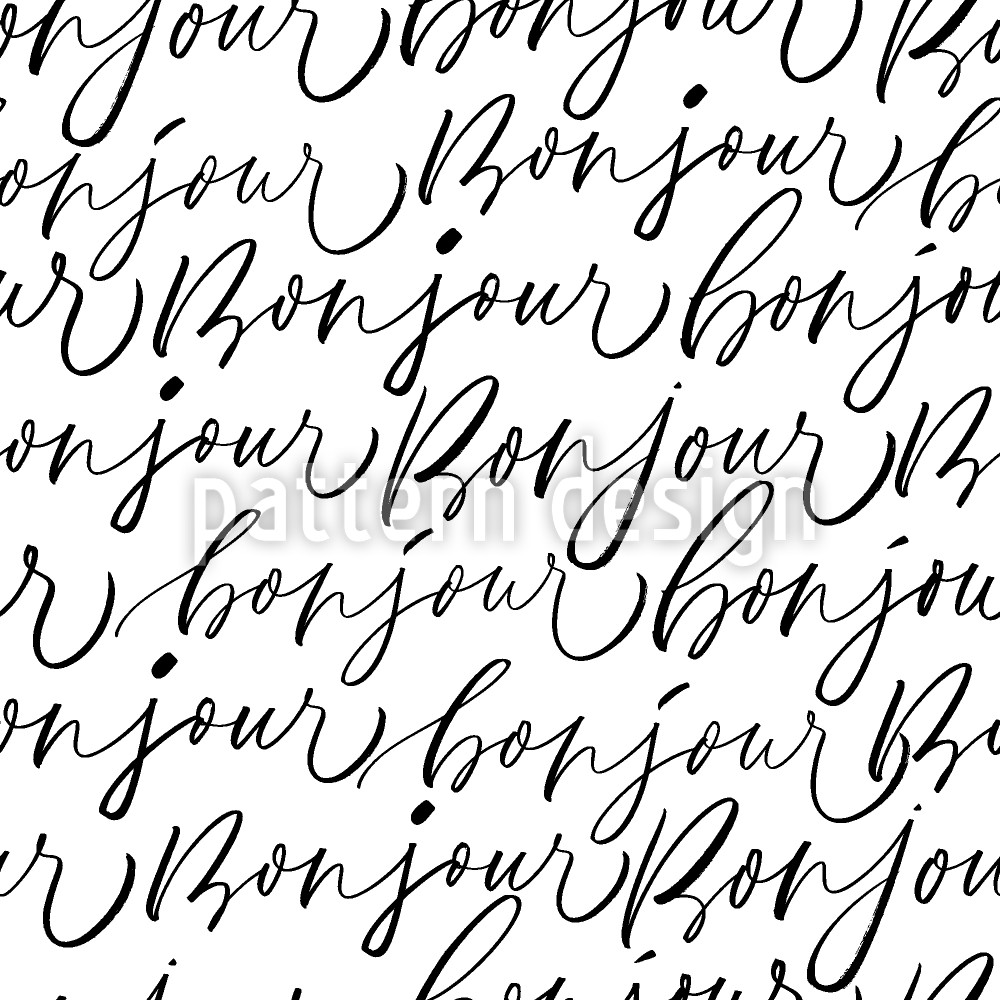 onjour bonjour Bo
onjour Bonjour bo
ur Bonjour bonjou
onjour Bonjour B
pattern design
r bonjour bonjou
onjour bonjour Bo
ur Bonjour Bonjou
bonjour B